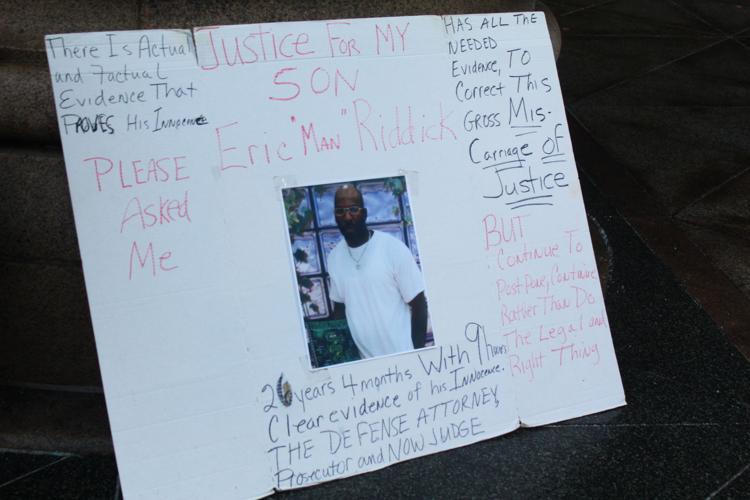 There Is Actual
and Factual
Evidence That
PROVES His Innocence
PLEASE
Asked
Me
JUSTICE FOR MY
SON
Eric "MAN" Riddick
26 years 4 months With 9 hours
Clear evidence of his Innocence.
THE DEFENSE ATTORNEY,
Prosecutor and NOW JUDGE
HAS ALL THE
NEEDED
Evidence, TO
Correct This
GROSS Mis-
Carriage OF
Justice
BUT
Continue To
PostPone, Continue
Rather Than Do
The Legal and
Right Thing